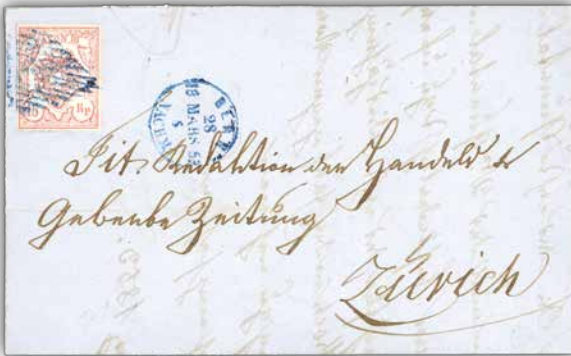 Rp.
BERN
28
18 MARS 52
5
NACHM
Tit. Redaktion der Handels &
Gewerbe Zeitung
Zürich